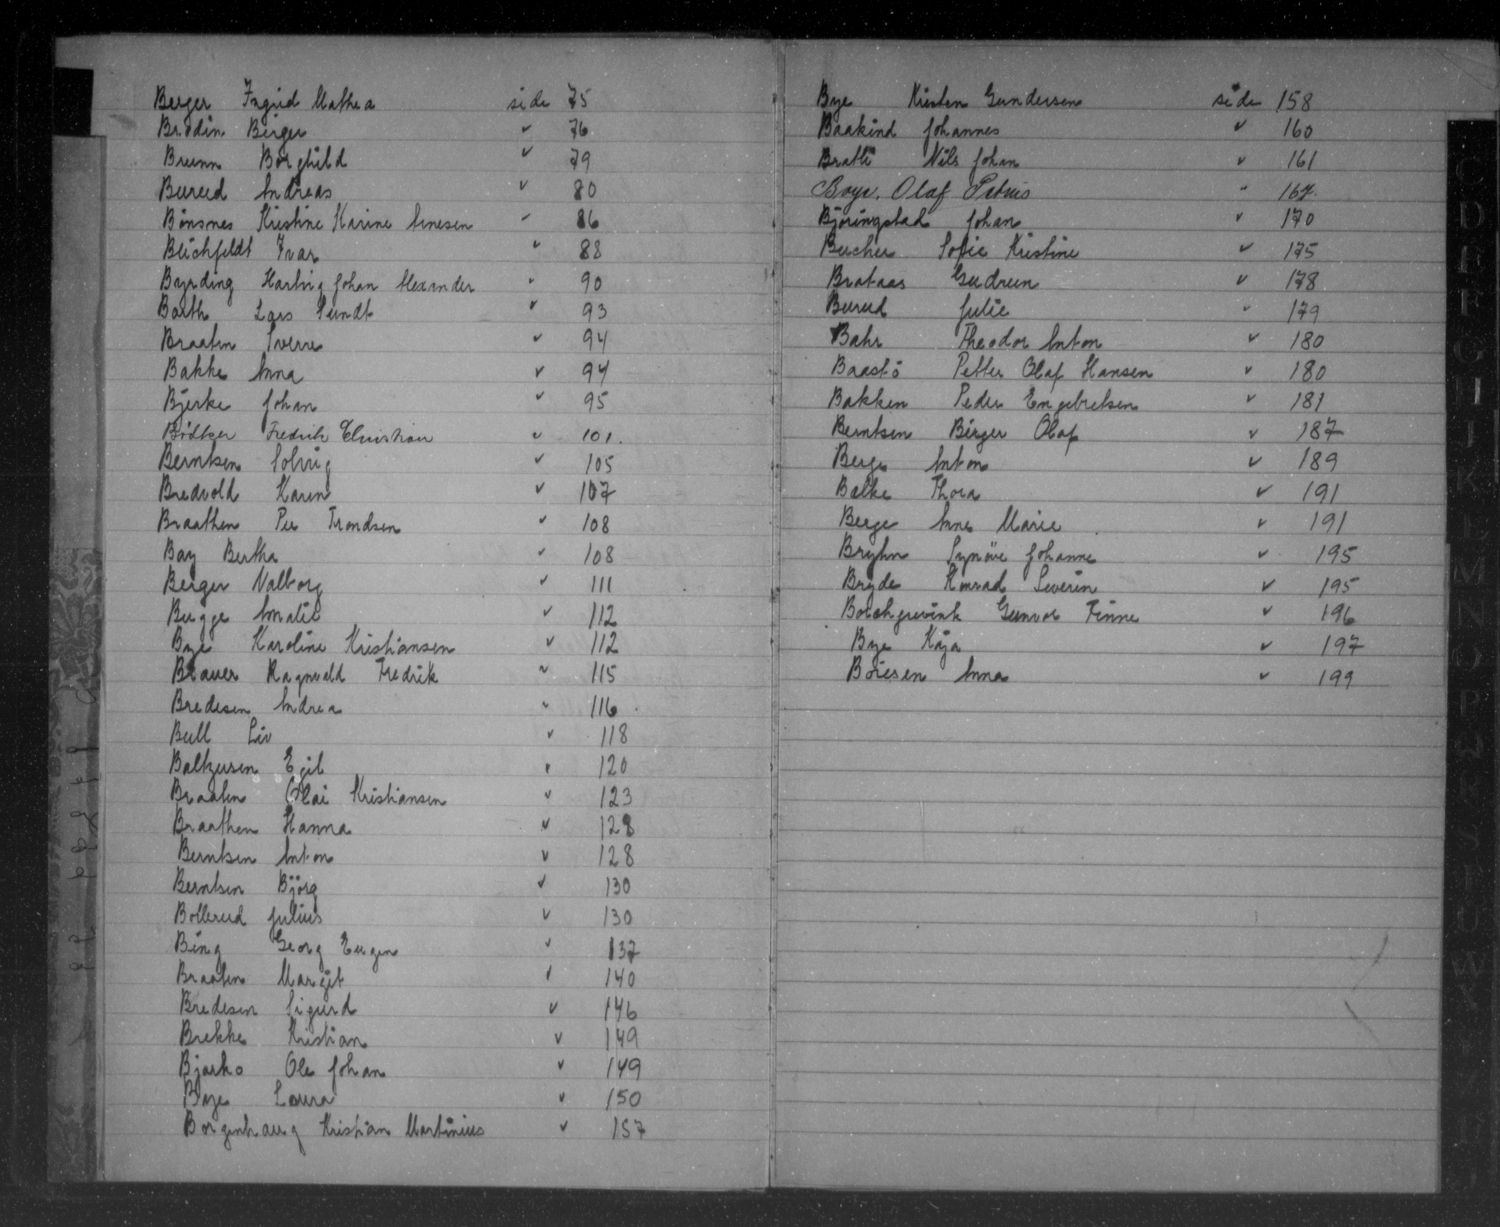 Berger Ingrid Mathea side 75
Brodin Birger " 76
Brunn Borghild " 79
Burud Andreas " 80
Bönsnes Kirstine Karine Arnesen " 86
Blichfeldt Ivar " 88
Byrding Hartvig Johan Alexander " 90
Barth Lars Sundt " 93
Braaten Sverre " 94
Bakke Anna " 94
Bjerke Johan " 95
Bödtker Fredrik Christian " 101.
Berntsen Solveig " 105
Bredvold Karen " 107
Braathen Per Trondsen " 108
Bay Bertha " 108
Berger Valborg " 111
Bugge Amalie " 112
Bye Karoline Kristiansen " 112
Brauer Ragnvald Fredrik " 115
Bredesen Andrea " 116
Bull Liv " 118
Baltzersen Egil " 120
Braaten Olai Kristiansen " 123
Braathen Hanna " 128
Berntsen Anton " 128
Berntsen Björg " 130
Bollerud Julius " 130
Bing Georg Eugen " 137
Braaten Margit " 140
Bredesen Sigurd " 146
Brekke Kristian " 149
Bjarko Ole Johan " 149
Boye Laura " 150
Borgenhaug Kristian Martinius " 157
Bye Kristen Gundersen side 158
Baakind Johannes " 160
Bratli Nils Johan " 161
Boye. Olaf Petrus " 167.
Björingstad Johan " 170
Bucher Sofie Kristine " 175
Brataas Gudrun " 178
Burud Julie " 179
Bahr Theodor Anton " 180
Baastö Petter Olaf Hansen " 180
Bakken Peder Engebretsen " 181
Berntsen Birger Olaf " 187
Berge Anton " 189
Balke Thora " 191
Berge Anne Marie " 191
Bryhn Synöve Johanne " 195
Bryde Konrad Severin " 195
Borchgrevink Gunvor Finne " 196
Bye Kaja " 197
Böresen Anna " 199
C
D
E
F
G
H
I
J
K
L
M
N
O
P
R
S
T
U
W
X